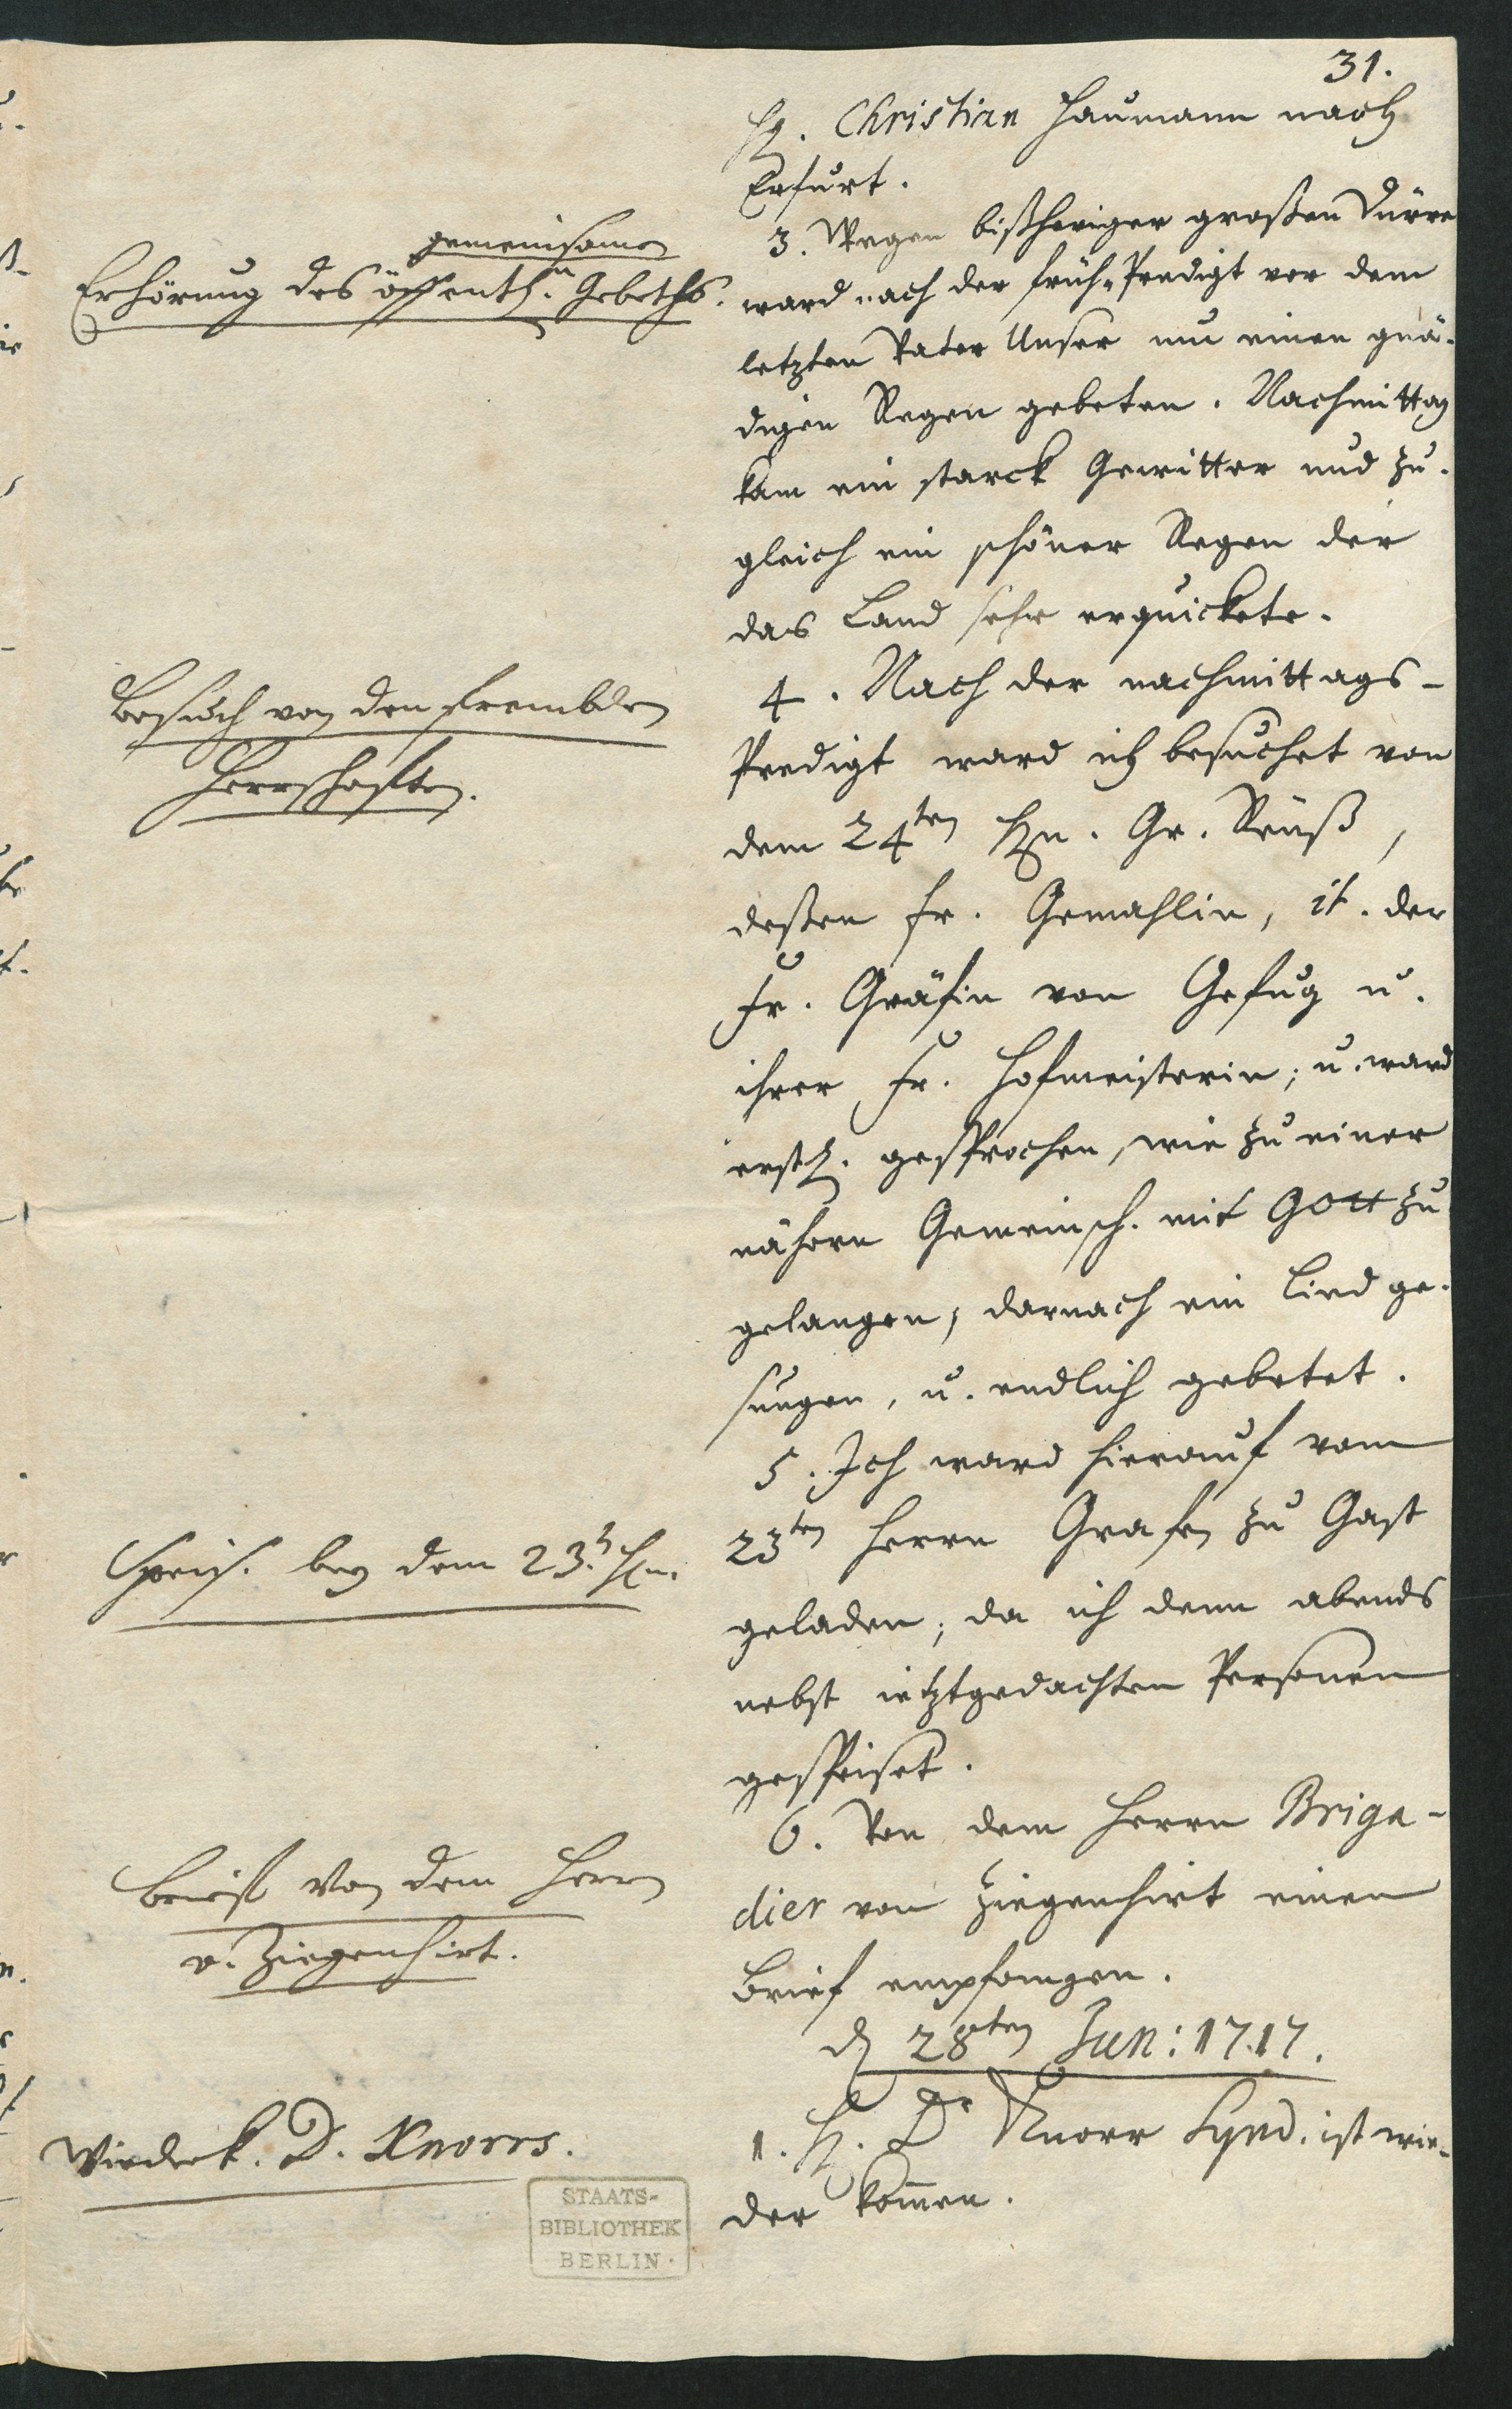 31.
H. Christian Haumann nach
Erfurt.
3. Wegen bißheriger großen Dürre
ward nach der früh-Predigt vor dem
letzten Vater Unser um einen gnä-
digen Regen gebeten. Nachmittag
kam ein starck Gewitter und zu-
gleich ein schöner Regen der
das Land sehr erquickete.
4. Nach der nachmittags-
Predigt ward ich besuchet von
dem 24ten Hn. Gr. Reuß,
deßen Fr. Gemahlin, it. der
Fr. Gräfin von Gefug u.
ihrer Fr. Hofmeisterin; u. ward
erstl. gesprochen, wie zu einer
nähern Gemeinsch. mit GOtt zu
gelangen, darnach ein Lied ge-
sungen, u. endlich gebetet.
5. Ich ward hierauf vom
23ten Herrn Grafen zu Gast
geladen; da ich denn abends
nebst ietztgedachten Personen
gespeiset.
6. Von dem Herrn Briga-
dier von Ziegenhirt einen
Brief empfangen.
d 28ten Jun: 1717.
1. H. Dr Knorr Synd. ist wie-
der kommen.
gemeinsamen
Erhörung des öffentl.n Gebeths.
Besuch von den frembden
Herrschafften.
Speis. bey dem 23.t Hn.
Brieff von dem Herrn
v. Ziegenhirt.
Wiederk. D. Knorrs.
STAATS-
BIBLIOTHEK
BERLIN